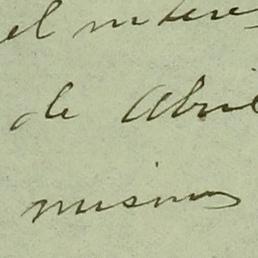 el interes
de Abril
mismo